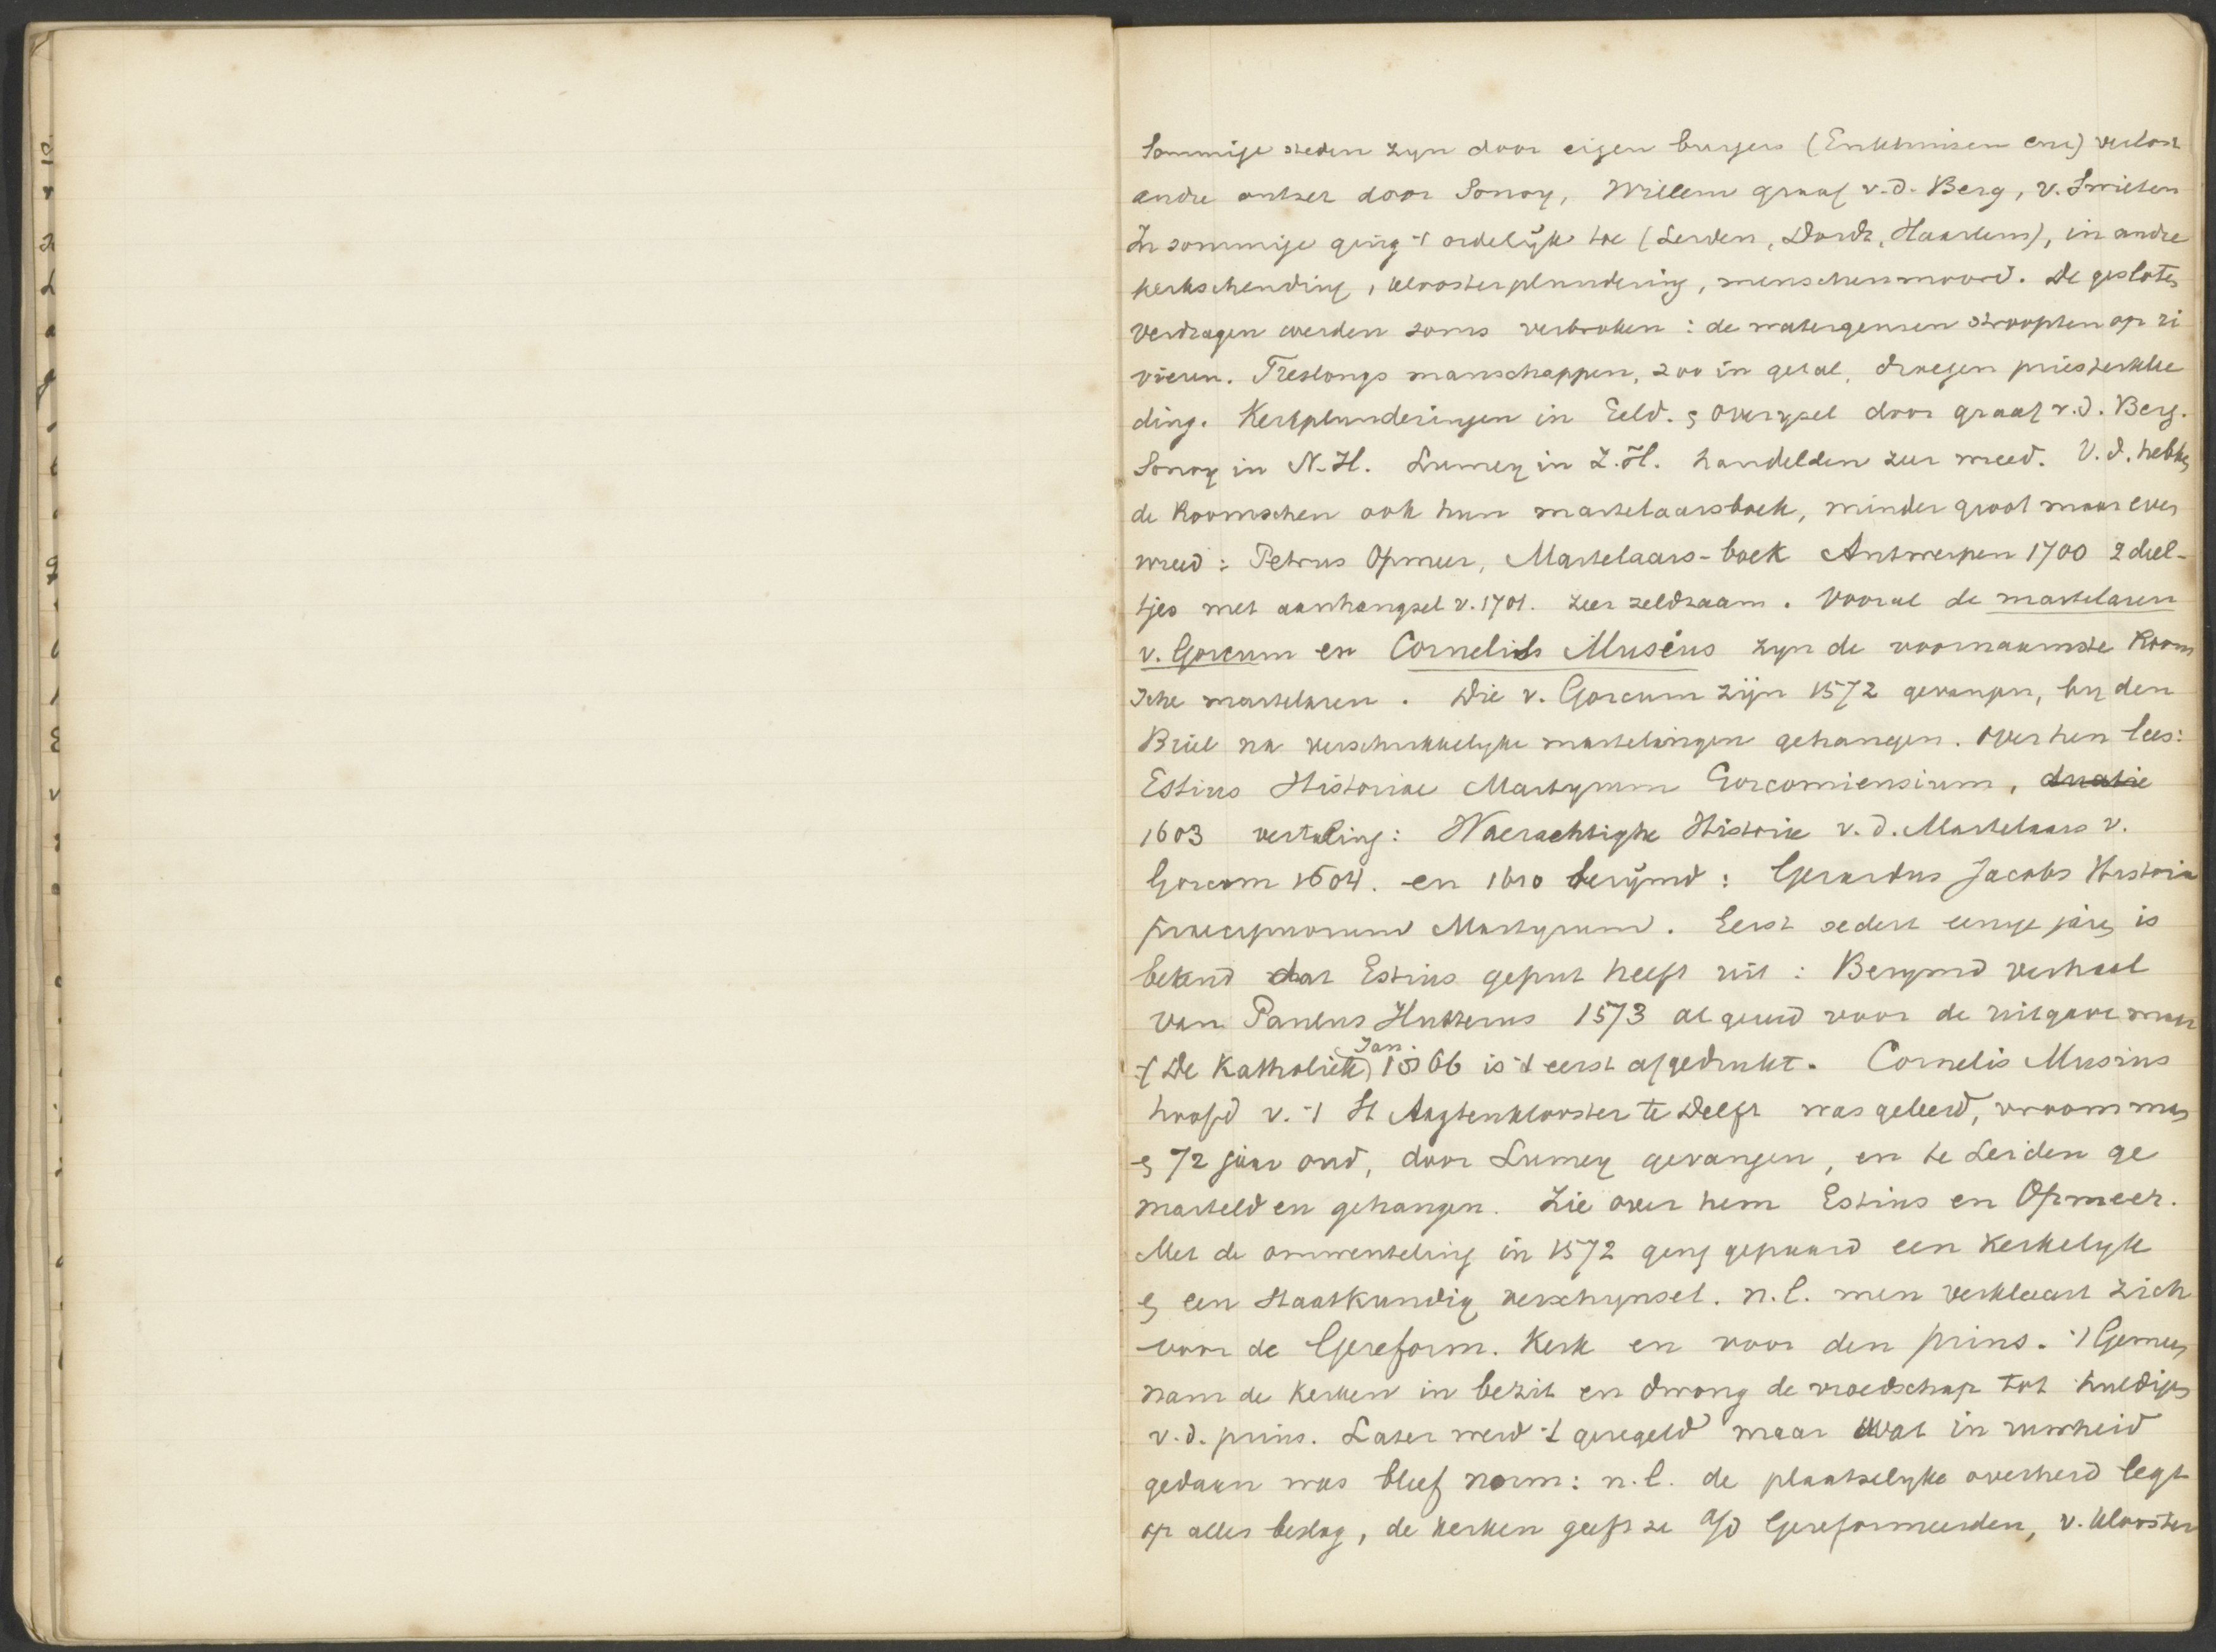 Sommige steden zyn door eigen burgers (Enkhuisen enz) verlost
andre ontzet door Sonoy, Willem graaf v.d. Berg, v. Swieten
In sommige ging 't ordelijk toe (Leiden, Dordt, Haarlem), in andre
kerkschending, kloosterplundering, menschenmoord. De gesloten
verdragen werden soms verbroken: de watergeusen stroopten op ri
vieren. Treslongs manschappen, 200 in getal, droegen priesterklee
ding. Kerkplunderingen in Geld. & Overysel door graaf v.d. Berg.
Sonoy in N-H. Lumey in Z.H. handelden zeer wreed. V.d. hebben
de Roomschen ook hun martelaarsboek, minder groot maar even
wreed: Petrus Opmeer, Martelaars-boek Antwerpen 1700 2 deel-
tjes met aanhangsel v. 1701. zeer zeldzaam. Vooral de martelaren
v. Gorcum en Cornelis Musius zyn de voornaamste Room
sche martelaren. Die v. Gorcum zijn 1572 gevangen, by den
Briel na verschrikkelyke martelingen gehangen. Over hen lees:
Estius Historiae Martyrum Gorcomiensium,
1603 vertaling: Waerachtighe Historie v.d. Martelaars v.
Gorcom 1604. en 1610 berijmd: Gerardus Jacobs Historia
praecipuorum Martyrum. Eerst sedert eenige jaren is
bekend dat Estius geput heeft uit: Berymd verhaal
van Paulus 1573 al gereed voor de uitgave maar
(De Katholiek) Jan. 1866 is 't eerst afgedrukt. Cornelis Musius
hoofd v. 't St Aagtenklooster te Delft was geleerd, vroom man
& 72 jaar oud, door Lumey gevangen, en te Leiden ge
marteld en gehangen. Zie over hem Estius en Opmeer.
Met de omwenteling in 1572 ging gepaard een kerkelyk
& een staatkundig verschynsel. n.l. men verklaart zich
voor de Gereform. Kerk en voor den prins. 't Gemeen
nam de kerken in bezit en dwong de vroedschap tot huldigen
v.d. prins. Later werd 't geregeld maar wat in ruwheid
gedaan was bleef norm: n.l. de plaatselyke overheid legt
op alles beslag, de kerken geeft ze a/d Gereformeerden, v. klooster